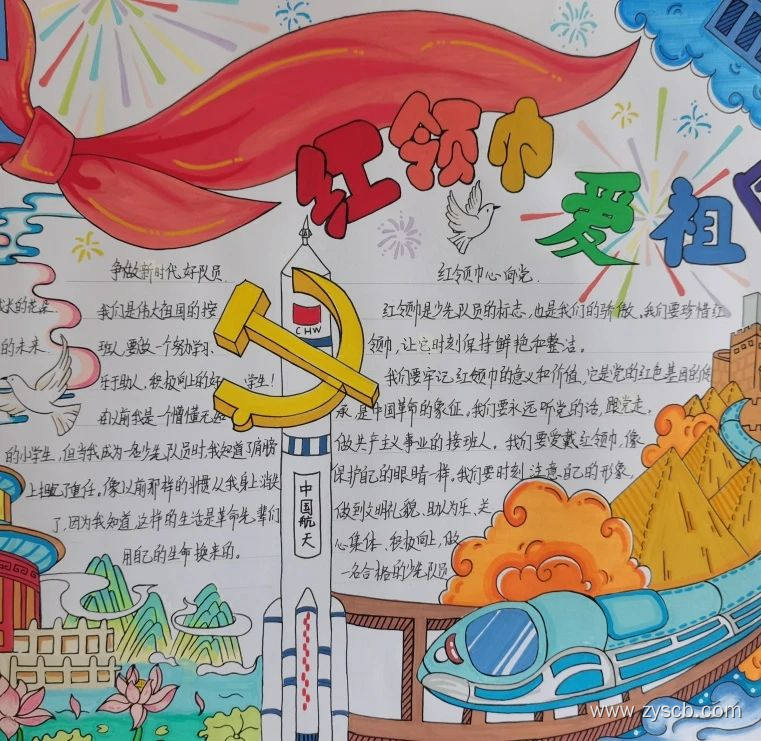 红领巾
爱祖
争做新时代好队员
我们是伟大祖国的接
班人,要做一个努力学习、
乐于助人、积极向上的好 学生!
在以前我是一个懵懂无知
的小学生,但当我成为一名少先队员时,我知道了肩膀
上担起了重任。像以前那样的习惯从我身上消失
了,因为我知道,这样的生活是革命先辈们
用自己的生命换来的。
的花朵
的未来
CHW
中国航天
红领巾心向党
红领巾是少先队员的标志,也是我们的骄傲。我们要珍惜红
领巾,让它时刻保持鲜艳和整洁。
我们要牢记红领巾的意义和价值,它是党的红色基因的传
承,是中国革命的象征。我们要永远听党的话,跟党走,
做共产主义事业的接班人。我们要爱戴红领巾,像
保护自己的眼睛一样。我们要时刻注意自己的形象
做到文明礼貌、助人为乐、关
心集体、积极向上,做
一名合格的少先队员
www.zyscb.com